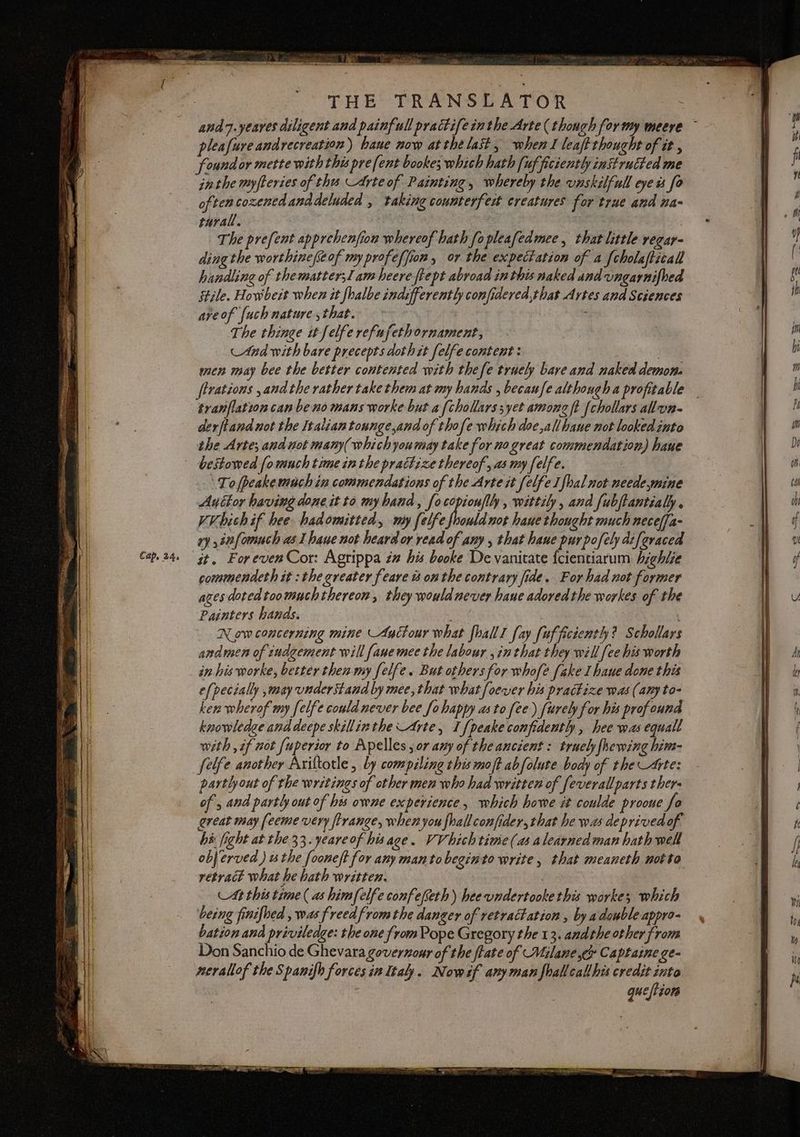 THE TRANSLATOR
and 7. yeares diligent and painfull practise in the Arte (though for my meere
pleasure and recreation) haue now at the last, when I least thought of it,
found or mette with this present booke; which hath sufficiently instructed me
in the mysteries of this Arte of Painting, whereby the vnskilfull eye is so
often cozened and deluded, taking counterfeit creatures for true and na-
turall.
The present apprehension whereof hath so pleased mee, that little regar-
ding the worthinesse of my profession, or the expectation of a scholasticall
handling of the matter; I am heere stept abroad in this naked and vngarnished
stile. Howbeit when it shalbe indifferently considered, that Artes and Sciences
are of such nature, that.
The thinge it selfe refuseth ornament,
And with bare precepts doth it selfe content:
men may bee the better contented with these truely bare and naked demon-
strations, and the rather take them at my hands, because although a profitable
translation can be no mans worke but a schollars; yet amongst schollars all vn-
derstand not the Italian tounge, and of those which doe, all haue not looked into
the Arte; and not many (which you may take for no great commendation) haue
bestowed so much time in the practize thereof, as my selfe.
To speake much in commendations of the Arte it selfe I shal not neede, mine
Auctor having done it to my hand, so copiouslly, wittily, and substantially.
VVhich if hee hadomitted, my selfe should not haue thought much necessa-
ry, insomuch as I haue not heard or read of any, that haue purposely disgraced
Cap. 24. it. For even Cor: Agrippa in his booke De vanitate scientiarum highlie
commendeth it: the greater feare is on the contrary side. For had not former
ages doted too much thereon, they would never haue adored the workes of the
Painters hands.
Now concerning mine Auctour what shall I say sufficiently? Schollars
and men of iudgement will saue mee the labour, in that they will see his worth
in his worke, better then my selfe. But others for whose sake I haue done this
especially, may vnderstand by mee, that what soever his practize was (any to-
ken wherof my selfe could never bee so happy as to see) surely for his profound
knowledge and deepe skill in the Arte, I speake confidently, hee was equall
with, if not superior to Apelles, or any of the ancient: truely shewing him-
selfe another Aristotle, by compiling this most absolute body of the Arte:
partly out of the writings of other men who had written of severall parts ther-
of, and partly out of his owne experience, which howe it coulde prooue so
great may seeme very strange, when you shall consider, that he was deprived of
his sight at the 33. yeare of his age. VVhich time (as a learned man hath well
observed) is the soonest for any man to begin to write, that meaneth not to
retract what he hath written.
At this time (as himselfe confesseth) hee vndertooke this worke; which
being finished, was freed from the danger of retractation, by a double appro-
bation and priviledge: the one from Pope Gregory the 13. and the other from
Don Sanchio de Ghevara governour of the state of Milane, & Captaine ge-
nerall of the Spanish forces in Italy. Now if any man shall call his credit into
question